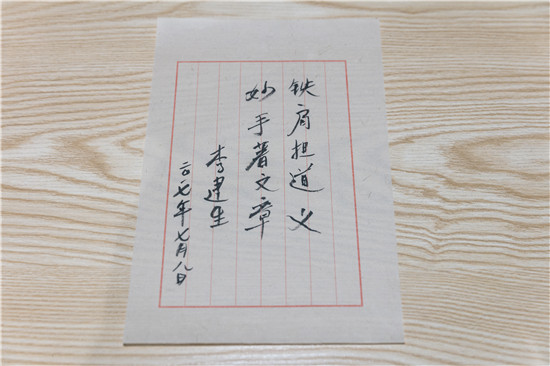 铁肩担道义
妙手著文章
李建生
二〇一七年七月八日